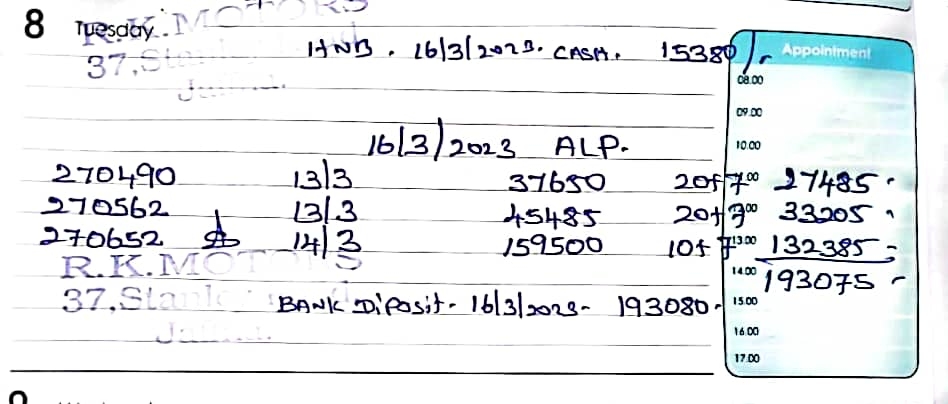 8 Tuesday
R.K.MOTORS
37,Stanl
HNB. 16/3/2023. CASH. 15380/-
Appointment
08.00
09.00
16/3/2023 ALP.
10.00
270490 13/3 37650 20+7 27485
270562 13/3 45485 20+7 33205
270652 14/3 159500 10+7 13.00 132385
R.K.MOTORS
14.00 193075
37,Stanl
BANK Diposit- 16/3/2023- 193080-
15.00
16.00
17.00